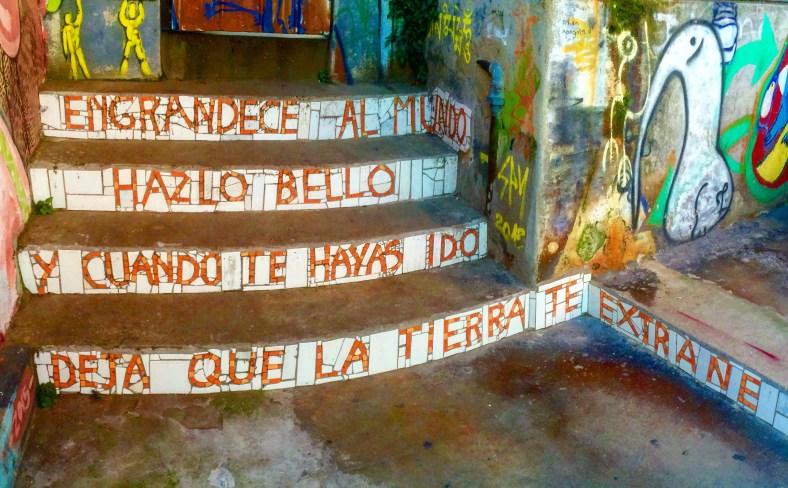 ENGRANDECE AL MUNDO
HAZLO BELLO
Y CUANDO TE HAYAS IDO
DEJA QUE LA TIERRA TE EXTRAÑE